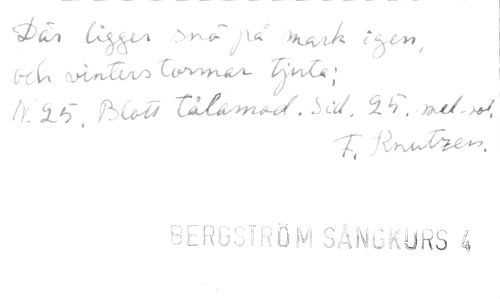 Där ligger snö på mark igen,
och vinterstormar tjuta;
N. 25. Blott tålamod. Sid. 25. mel-vol.
F. Knutzen.
BERGSTRÖM SÅNGKURS 4